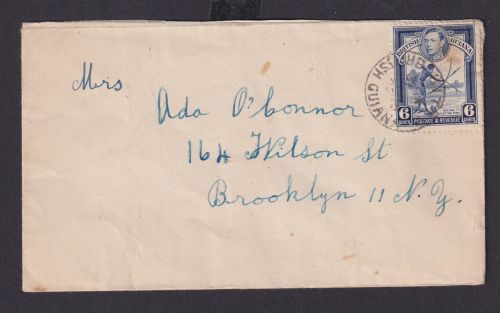 Mrs
Ada O'Connor
164 Wilson St
Brooklyn 11 N.Y.
BRITISH GUIANA
6 CENTS POSTAGE & REVENUE 6 CENTS